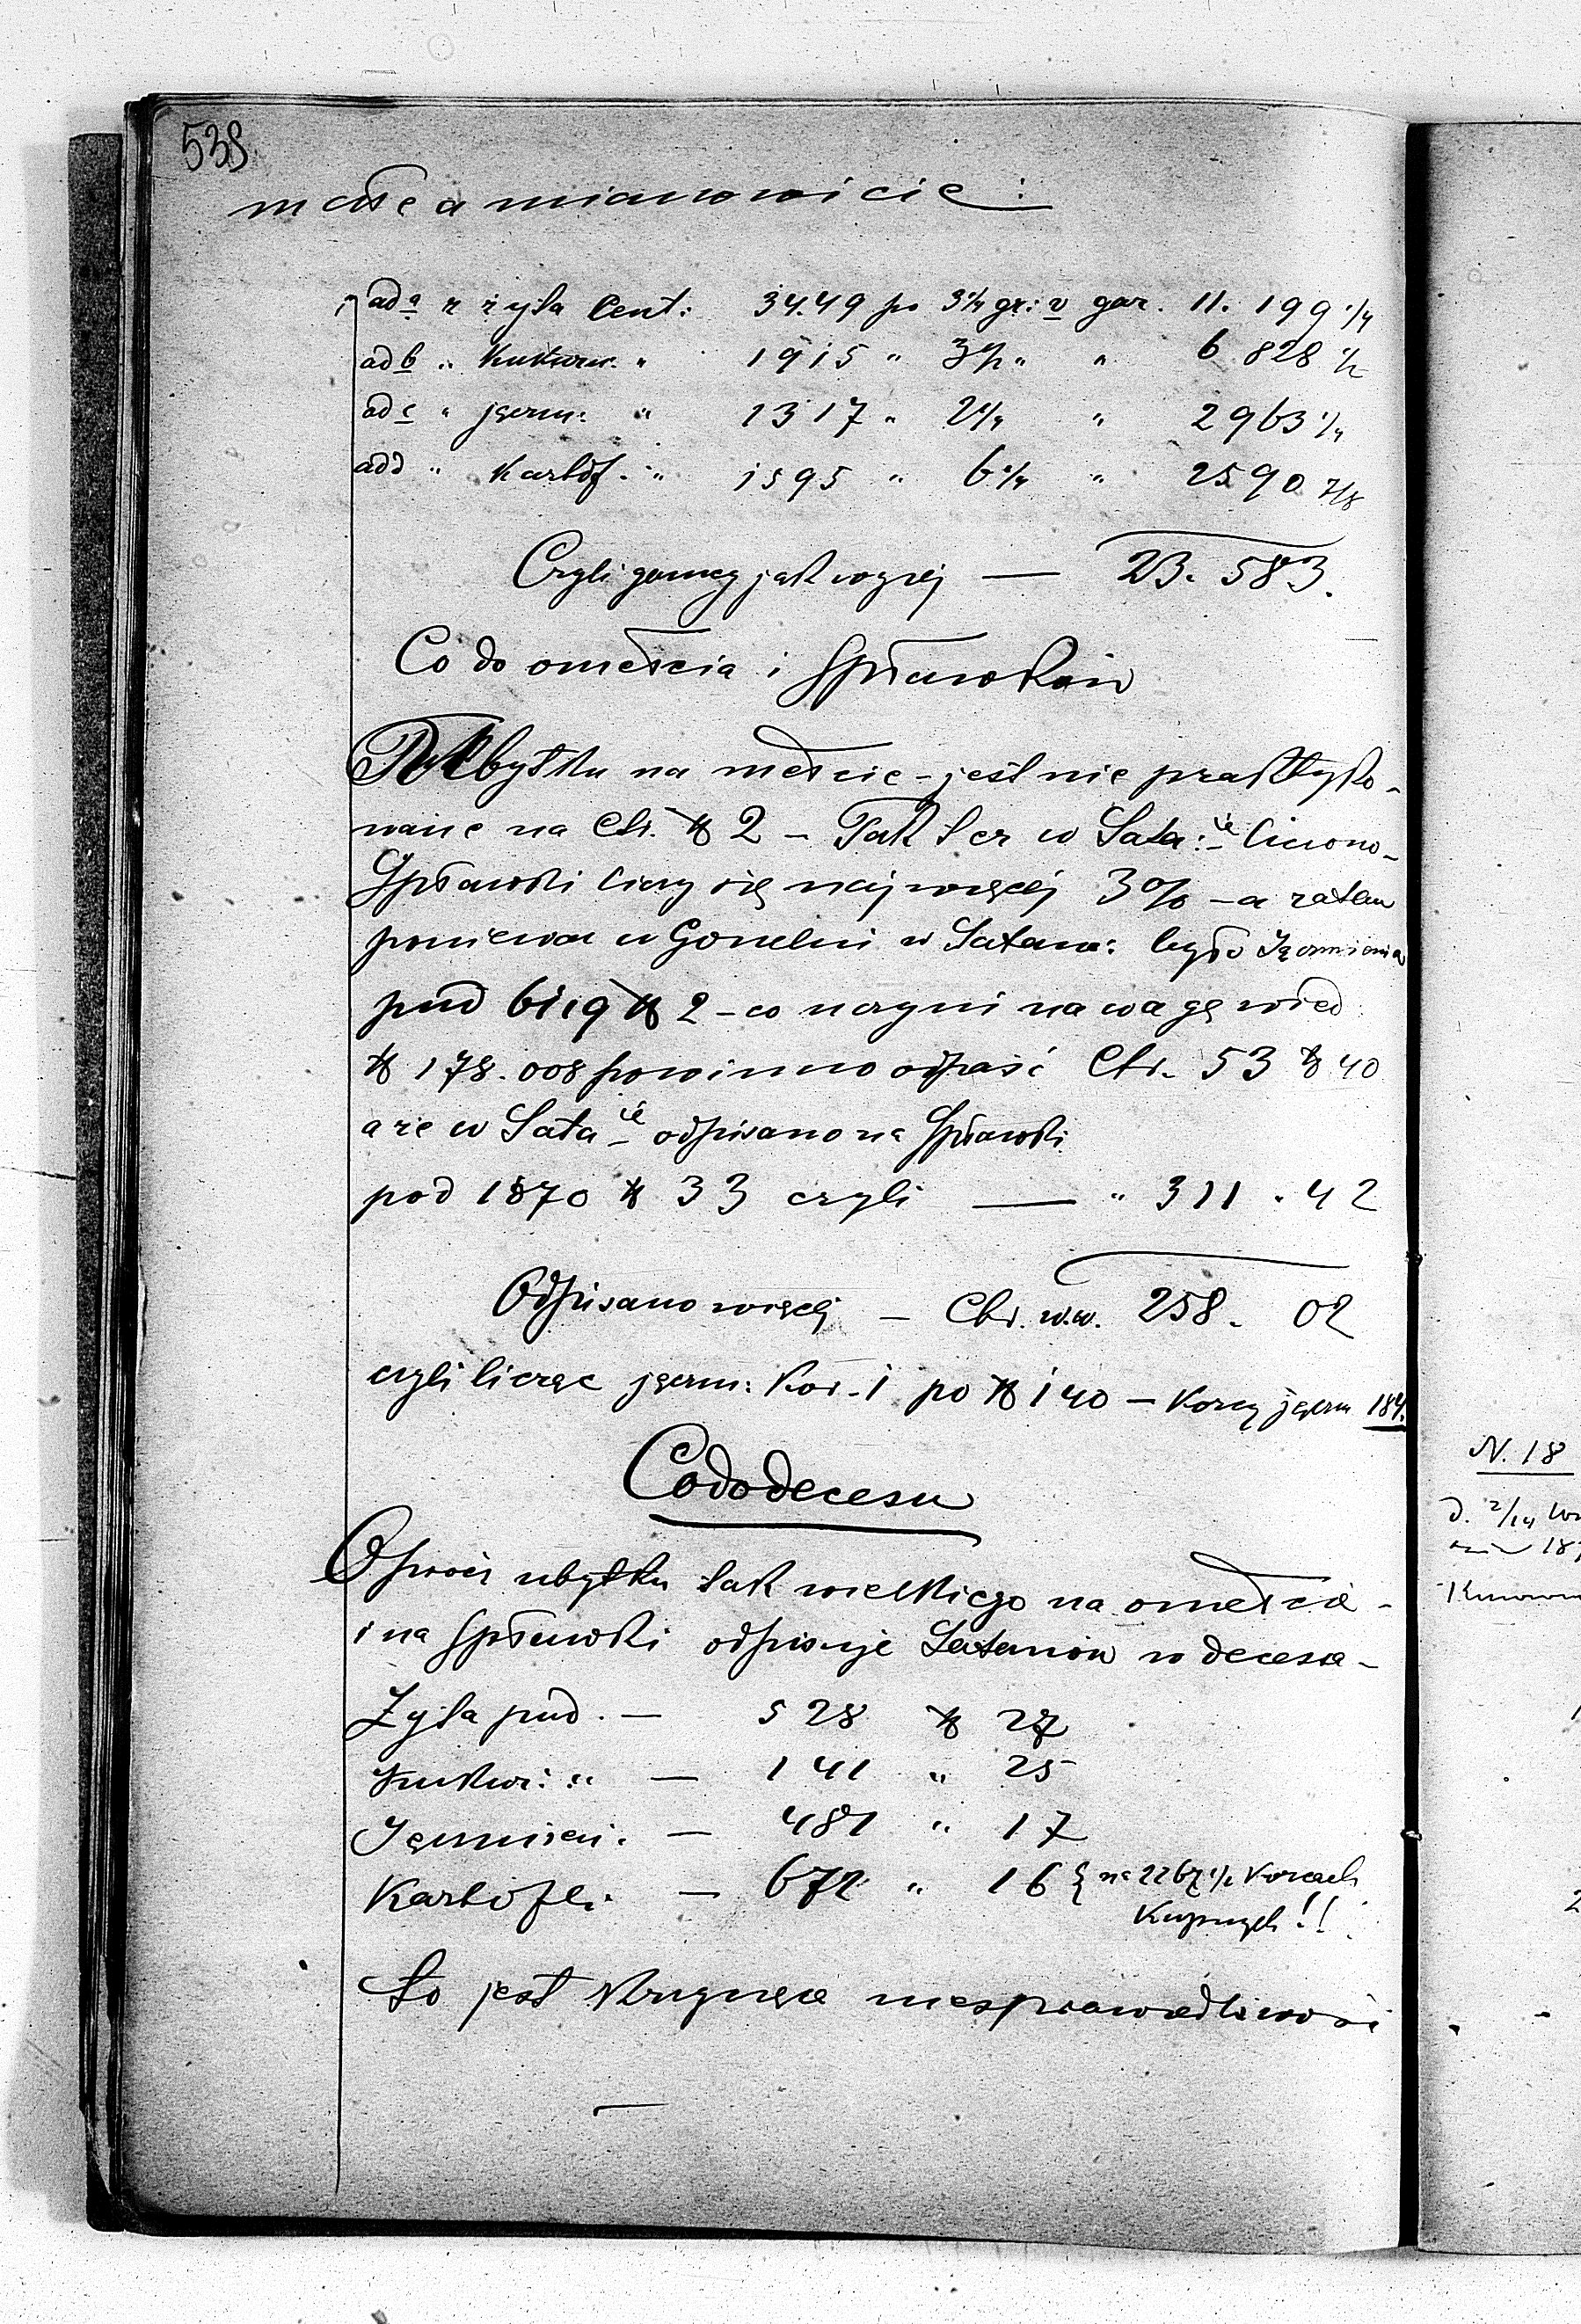 538
małe a mianowicie:
ad a z żyta Cent: 34.49 po 3 1/4 gr: v gar. 11. 199 1/4
ad b " Kukuru. " 1915 " 3 1/2 " " 6 828 1/2
ad c " jęczm: " 1317 " 2 1/4 " 2963 1/4
ad d " Kartof. " 1595 " 6 1/4 " 2590 7/8
Czyli gorncy jak wyżej — 23. 583.
Co do omełcia i Spławków
Ubytku na mełcie - jest nie praktyko-
wane na Ctr. ℔ 2 - Tak też w Sata: ie liczono -
Spławki liczy się najwięcej 3% - a zatem
ponieważ w Gorzelni w Satan: było Jęczmienia
pud 6119 ℔ 2 - co uczyni na wagę wied
℔ 178.008 powinno odpaść Ctr. 53 ℔ 40
a że w Sata ie odpisano na Spławki
pod 1870 ℔ 33 czyli — " 311 . 42
Odpisano więcej — Ctr. w.w. 258. 02
czyli licząc jęczm: Kor. 1 po ℔ 140 — Korcy jęczm 184.
Co do decesu
Oprócz ubytku tak wielkiego na omełcie -
i na Spławki odpisuje Satanów w decesa -
Żyta pud. — 528 ℔ 27
Kukur: " — 141 " 25
Jęczmien. — 481 " 17
Kartofli. — 672 " 16 { na 2267 1/2 Korcach
Kupnych!!
to jest Krzycząca niesprawiedliwość
N. 18
d. 2/14